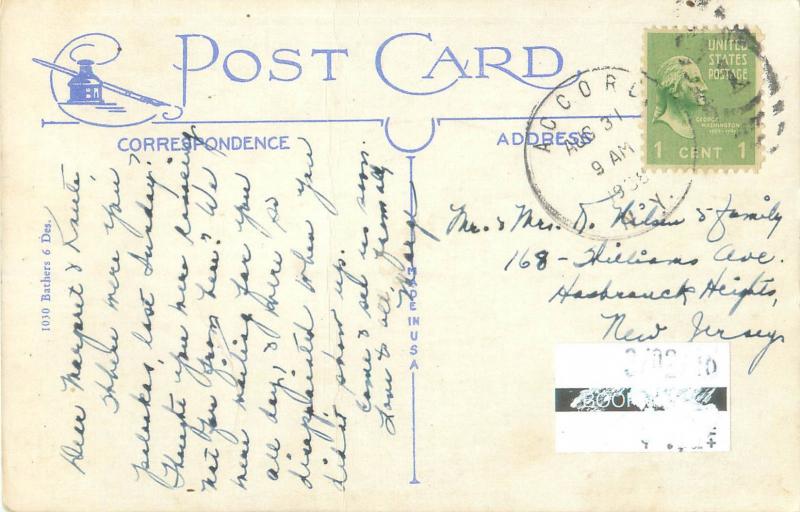 POST CARD
CORRESPONDENCE
ADDRESS
UNITED
STATES
POSTAGE
GEORGE
WASHINGTON
1 CENT 1
ACCORD
AUG 31
9 AM
1938
N.Y.
1030 Bathers 6 Des.
MADE IN U S A
Dear Margaret & Knute:
Where were you
last Sunday?
Thought you were leaving
not far from here? We
were waiting for you
all day, & were so
disappointed when you
didn't show up.
Come & see us soon.
Love to all, from all
Marge
Mr. & Mrs. K. Nilsen & family
168 - Williams Ave.
Hasbrouck Heights,
New Jersey